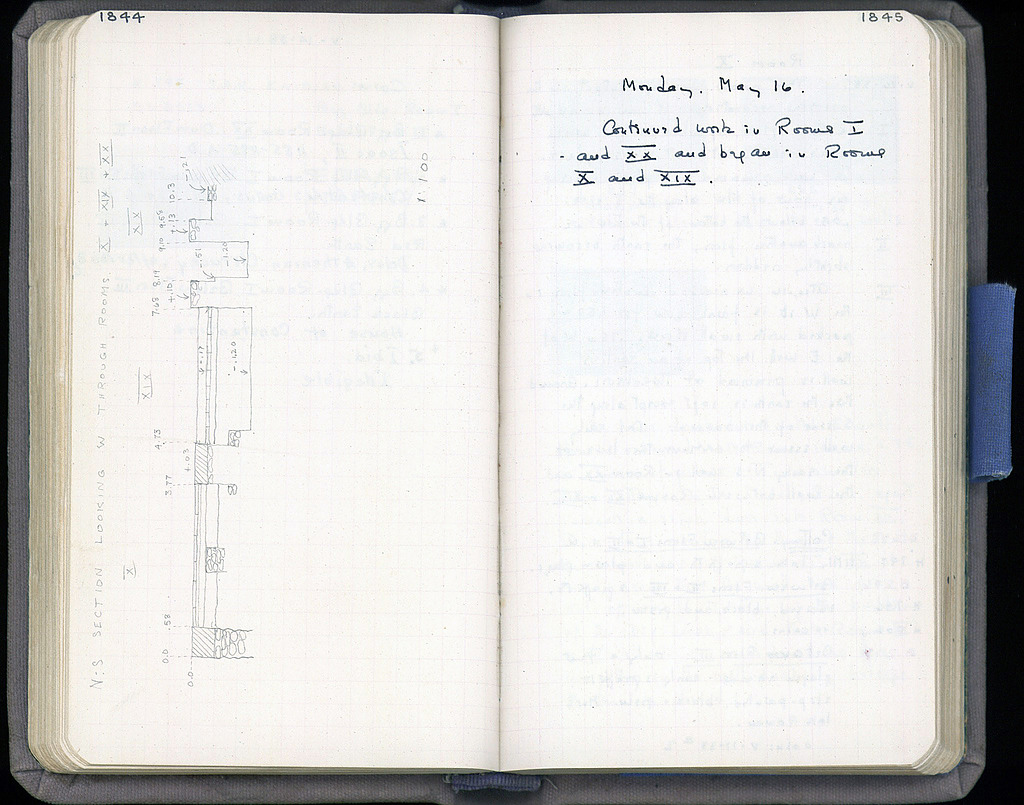 1844
N:S SECTION LOOKING W THROUGH ROOMS X + XIX + XX
X
XIX
XX
0.0
.58
3.77
4.73
7.68
8.19
9.10
9.13
9.56
10.3
0.0
+.03
-.17
-1.20
+.10
-.51
-1.20
-.21
1:100
1845
Monday. May 16.
Continued work in Rooms I
- and XX and began in Rooms
X and XIX.